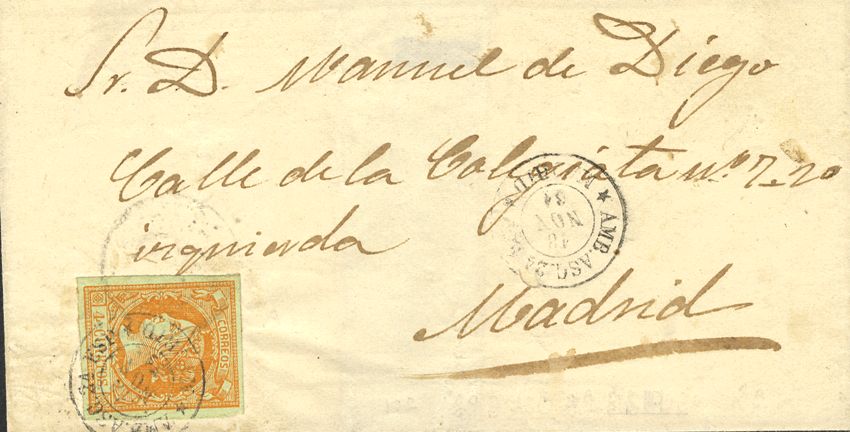 Sr. D. Manuel de Diego
Calle de la Colegiata nº 7 - 2º
izquierda
Madrid
★ AMB. ASC. 2A
18
NOV
CORREOS